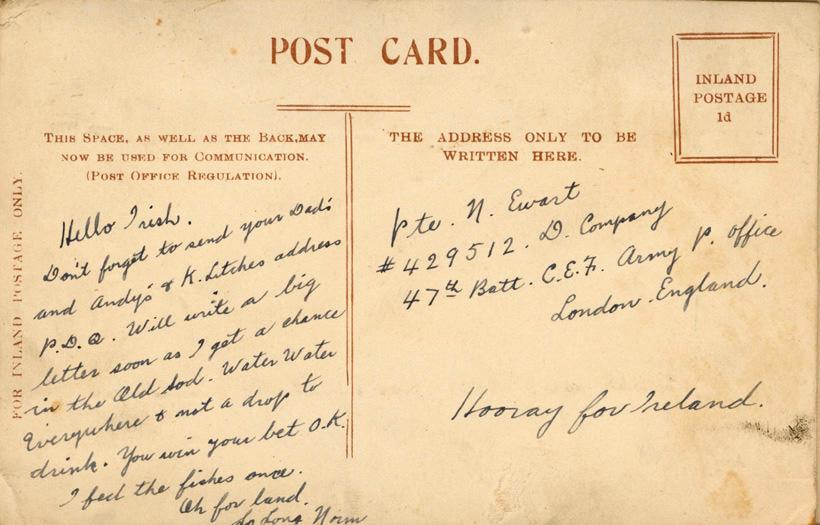 POST CARD.
INLAND
POSTAGE
1d
THIS SPACE, AS WELL AS THE BACK, MAY
NOW BE USED FOR COMMUNICATION.
(POST OFFICE REGULATION).
THE ADDRESS ONLY TO BE
WRITTEN HERE.
FOR INLAND POSTAGE ONLY.
Hello Irish.
Don't forget to send your Dad's
and Andy's & K. Litches address
P.D.Q. Will write a big
letter soon as I get a chance
in the Old Sod. Water Water
Everywhere & not a drop to
drink. You win your bet O.K.
I feed the fishes once.
Oh for land.
So Long Norm
Pte. N. Ewart
#429512. D. Company
47th Batt. C.E.F. Army P. Office
London. England.
Hooray for Ireland.